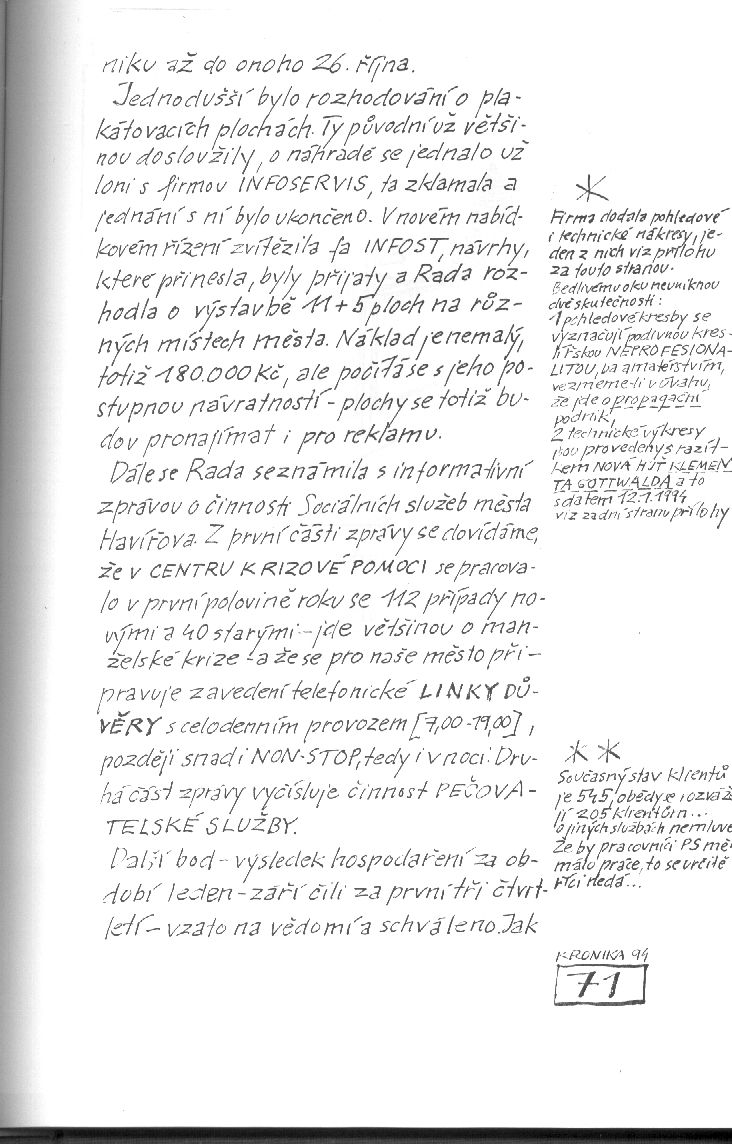 niku až do onoho 26. října.
Jednodušší bylo rozhodování o pla-
kátovacích plochách. Ty původní už větši-
nou dosloužily, o náhradě se jednalo už
loni s firmou INFOSERVIS, ta zklamala a
jednání s ní bylo ukončeno. V novém nabíd-
kovém řízení zvítězila fa INFOST, návrhy,
které přinesla, byly přijaty a Rada roz-
hodla o výstavbě 11+5 ploch na růz-
ných místech města. Náklad je nemalý,
totiž 180.000 Kč, ale počítá se s jeho po-
stupnou návratností - plochy se totiž bu-
dou pronajímat i pro reklamu.
Dále se Rada seznámila s informativní
zprávou o činnosti Sociálních služeb města
Havířova. Z první části zprávy se dovídáme,
že v CENTRU KRIZOVÉ POMOCI se pracova-
lo v první polovině roku se 112 případy no-
vými a 40 starými - jde většinou o man-
želské krize - a že se pro naše město při-
pravuje zavedení telefonické LINKY DŮ-
VĚRY s celodenním provozem [7,00-19,00],
později snad i NON-STOP, tedy i v noci. Dru-
há část zprávy vyčísluje činnost PEČOVA-
TELSKÉ SLUŽBY.
Další bod - výsledek hospodaření za ob-
dobí leden - září čili za první tři čtvrt-
letí - vzato na vědomí a schváleno. Jak
*
Firma dodala pohledové
i technické nákresy, je-
den z nich viz přílohu
za touto stranou.
Bedlivému oku neuniknou
dvě skutečnosti:
1 pohledové kresby se
vyznačují podivnou kres-
lířskou NEPROFESIONA-
LITOU, ba amatérstvím,
vezmeme-li v úvahu,
že jde o propagační
podnik,
2 technické výkresy
jsou provedeny s razít-
kem NOVÁ HUŤ KLEMEN
TA GOTTWALDA a to
s datem 12.1.1994
viz zadní stranu přílohy
* *
Současný stav klientů
je 545, obědy se rozváž
jí 205 klientům...
o jiných službách nemluvě
Že by pracovníci PS mě
málo práce, to se určitě
říci nedá...
KRONIKA 94
71